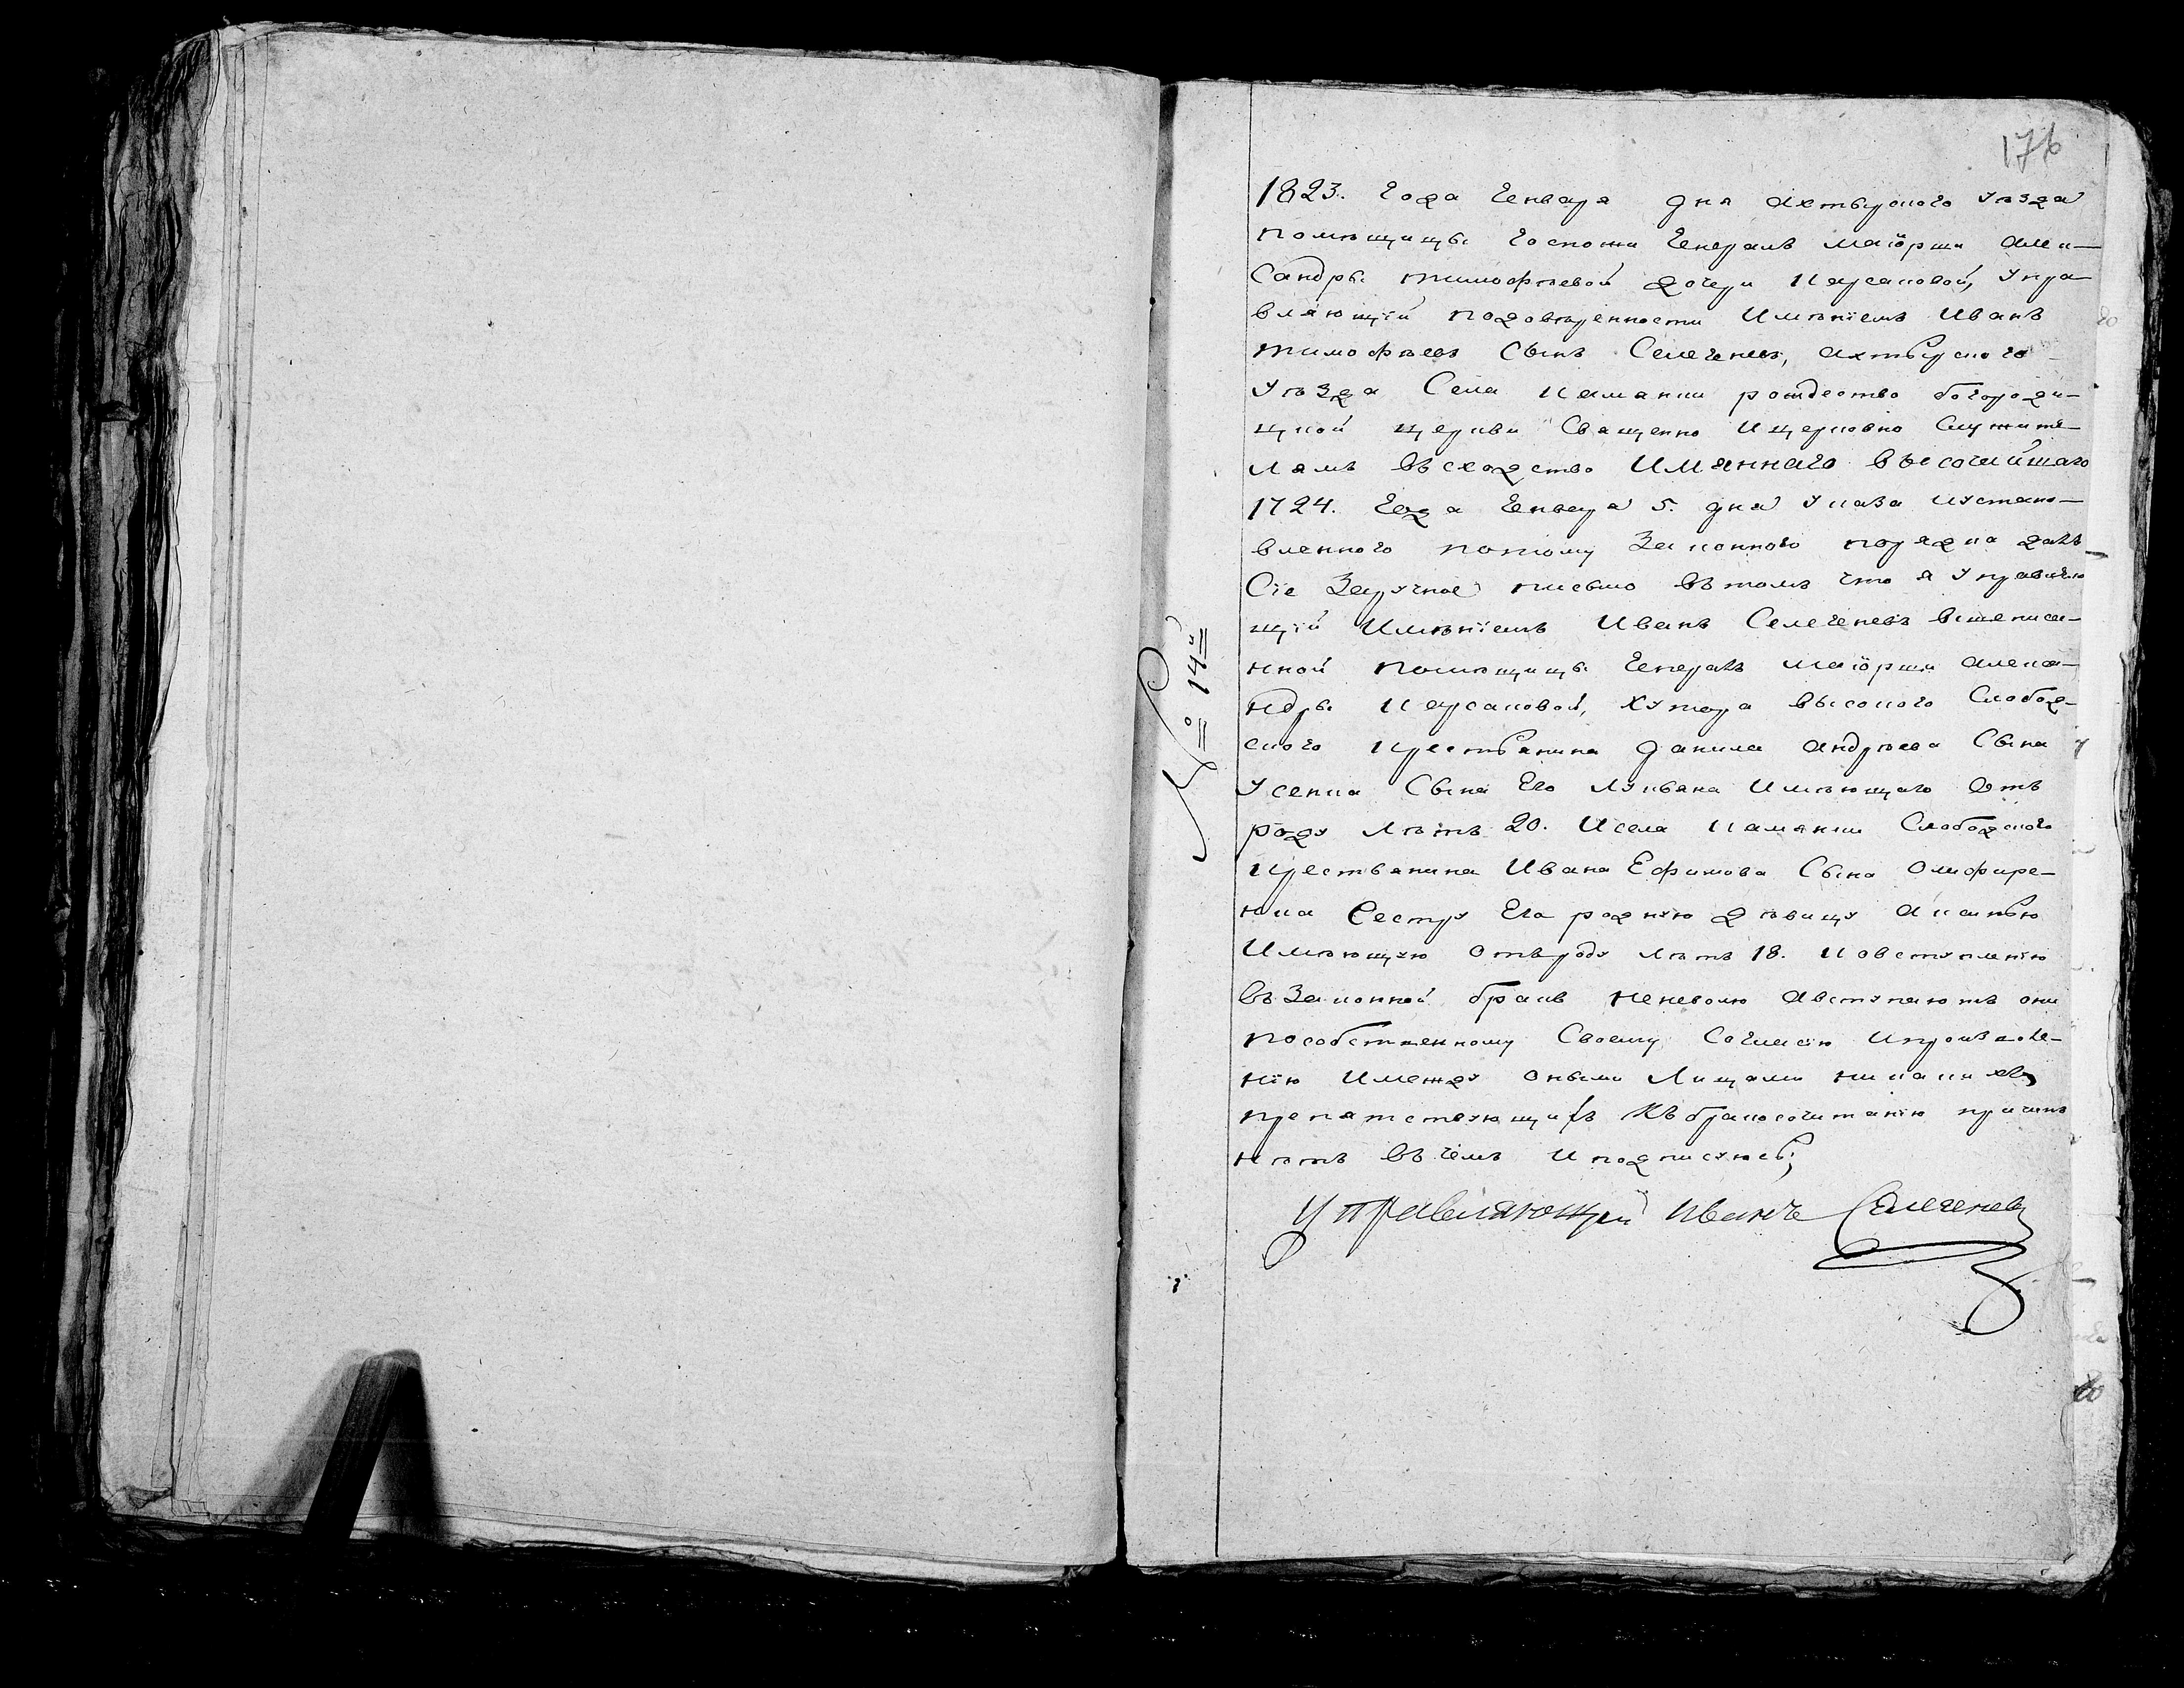 176
№ 14й
1823. Года Генваря дня Ахтырского уезда
помѣщицы Госпожи Генералъ маіорши Алек-
Сандры тимофѣевой дочери Карсаковой, Упра-
вляющій подовѣренности Имѣніемъ Иванъ
тимофѣевъ Сынъ Селегеневъ, Ахтырского
уѣзда Села каманки рождество богороди-
цкой церкви Священно Ицерковно Служите-
лямъ въсходство Имяннаго высочайшаго
1724. Года Генваря 5. дня указа иустано-
вленного потому Законного порядка далъ
Сіе Заручное писмо въ томъ что я управляю
щій Имѣніемъ Иванъ Селегеневъ вшеписа-
нной помѣщицы Генералъ маіорши алекса-
ндры Карсаковой, хутора высокого Слобод-
ского крестьянина данила андрѣева Сына
усенка Сына Его лукьяна Имѣющаго отъ
роду лѣтъ 20. Исела каманки Слободского
крестьянина Ивана Ефимова Сына Олифире-
нка Сестру Его родную дѣвицу Аксинью
Имѣющую отъроду лѣтъ 18. Ковступленію
въ Законной бракъ неневолю Авступаютъ они
пособственному Своему Согласію Ипроизволе-
нію Имежду оными Лицами никакихъ
препятствующихъ Къбракосочитанію причинъ
нѣтъ въ чемъ Иподписуюсь;
управляющий иванъ Селегеневъ